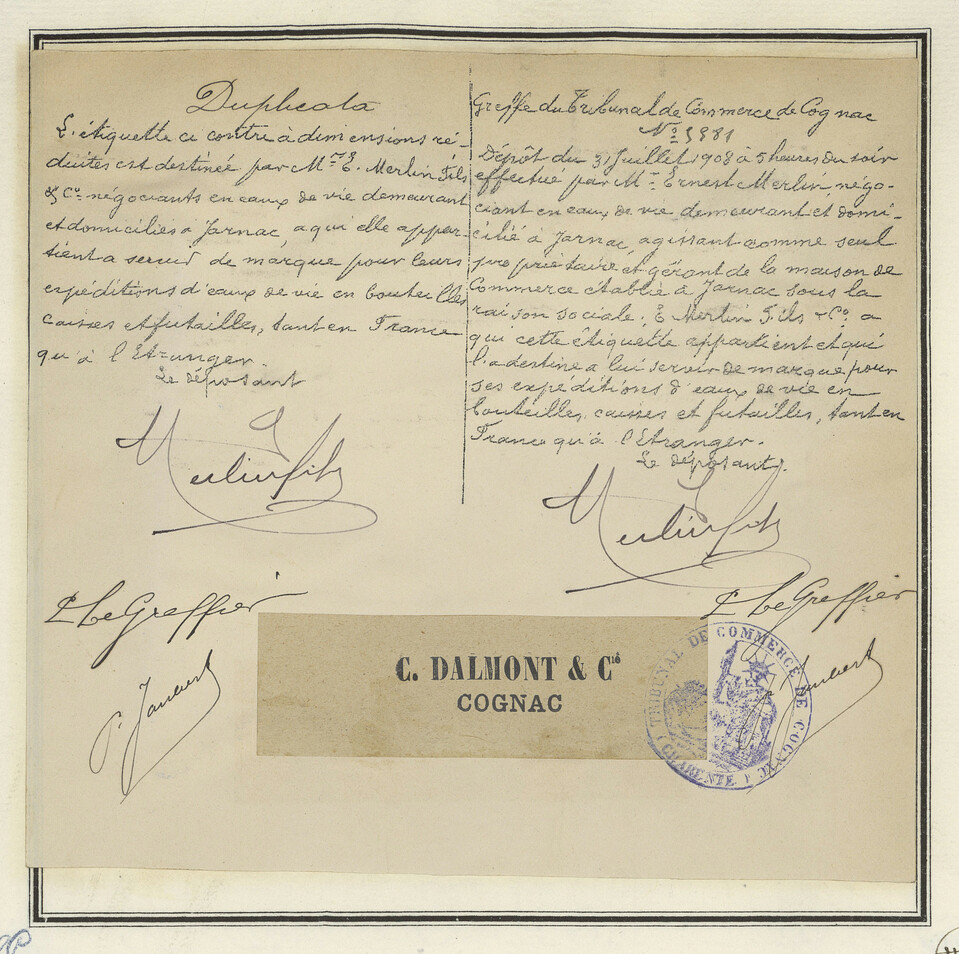 Duplicata
L'étiquette ci contre à dimensions ré-
duites est destinée par Mrs E. Merlin Fils
& Co négociants en eaux de vie demeurant
et domiciliés à Jarnac, a qui elle appar-
tient a servir de marque pour leurs
expéditions d'eaux de vie en bouteilles
caisses et futailles, tant en France
qu'à l'Etranger.
Le déposant
Merlin fils
P. Le Greffier
P. Jaubert
Greffe du Tribunal de Commerce de Cognac
No 5981
Dépôt du 31 Juillet 1908 à 5 heures du soir
effectué par Mr Ernest Merlin négo-
ciant en eaux de vie demeurant et domi-
cilié à Jarnac, agissant comme seul
propriétaire et gérant de la maison de
Commerce établie à Jarnac sous la
raison sociale. E Merlin Fils & Co. a
qui cette étiquette appartient et qui
l'a destine a lui servir de marque pour
ses expéditions d'eaux de vie en
bouteilles, caisses et futailles, tant en
France qu'à l'Etranger.
Le déposant.
Merlin fils
P. Le Greffier
Jaubert
C. DALMONT & Cie
COGNAC
TRIBUNAL DE COMMERCE DE COGNAC
(CHARENTE)